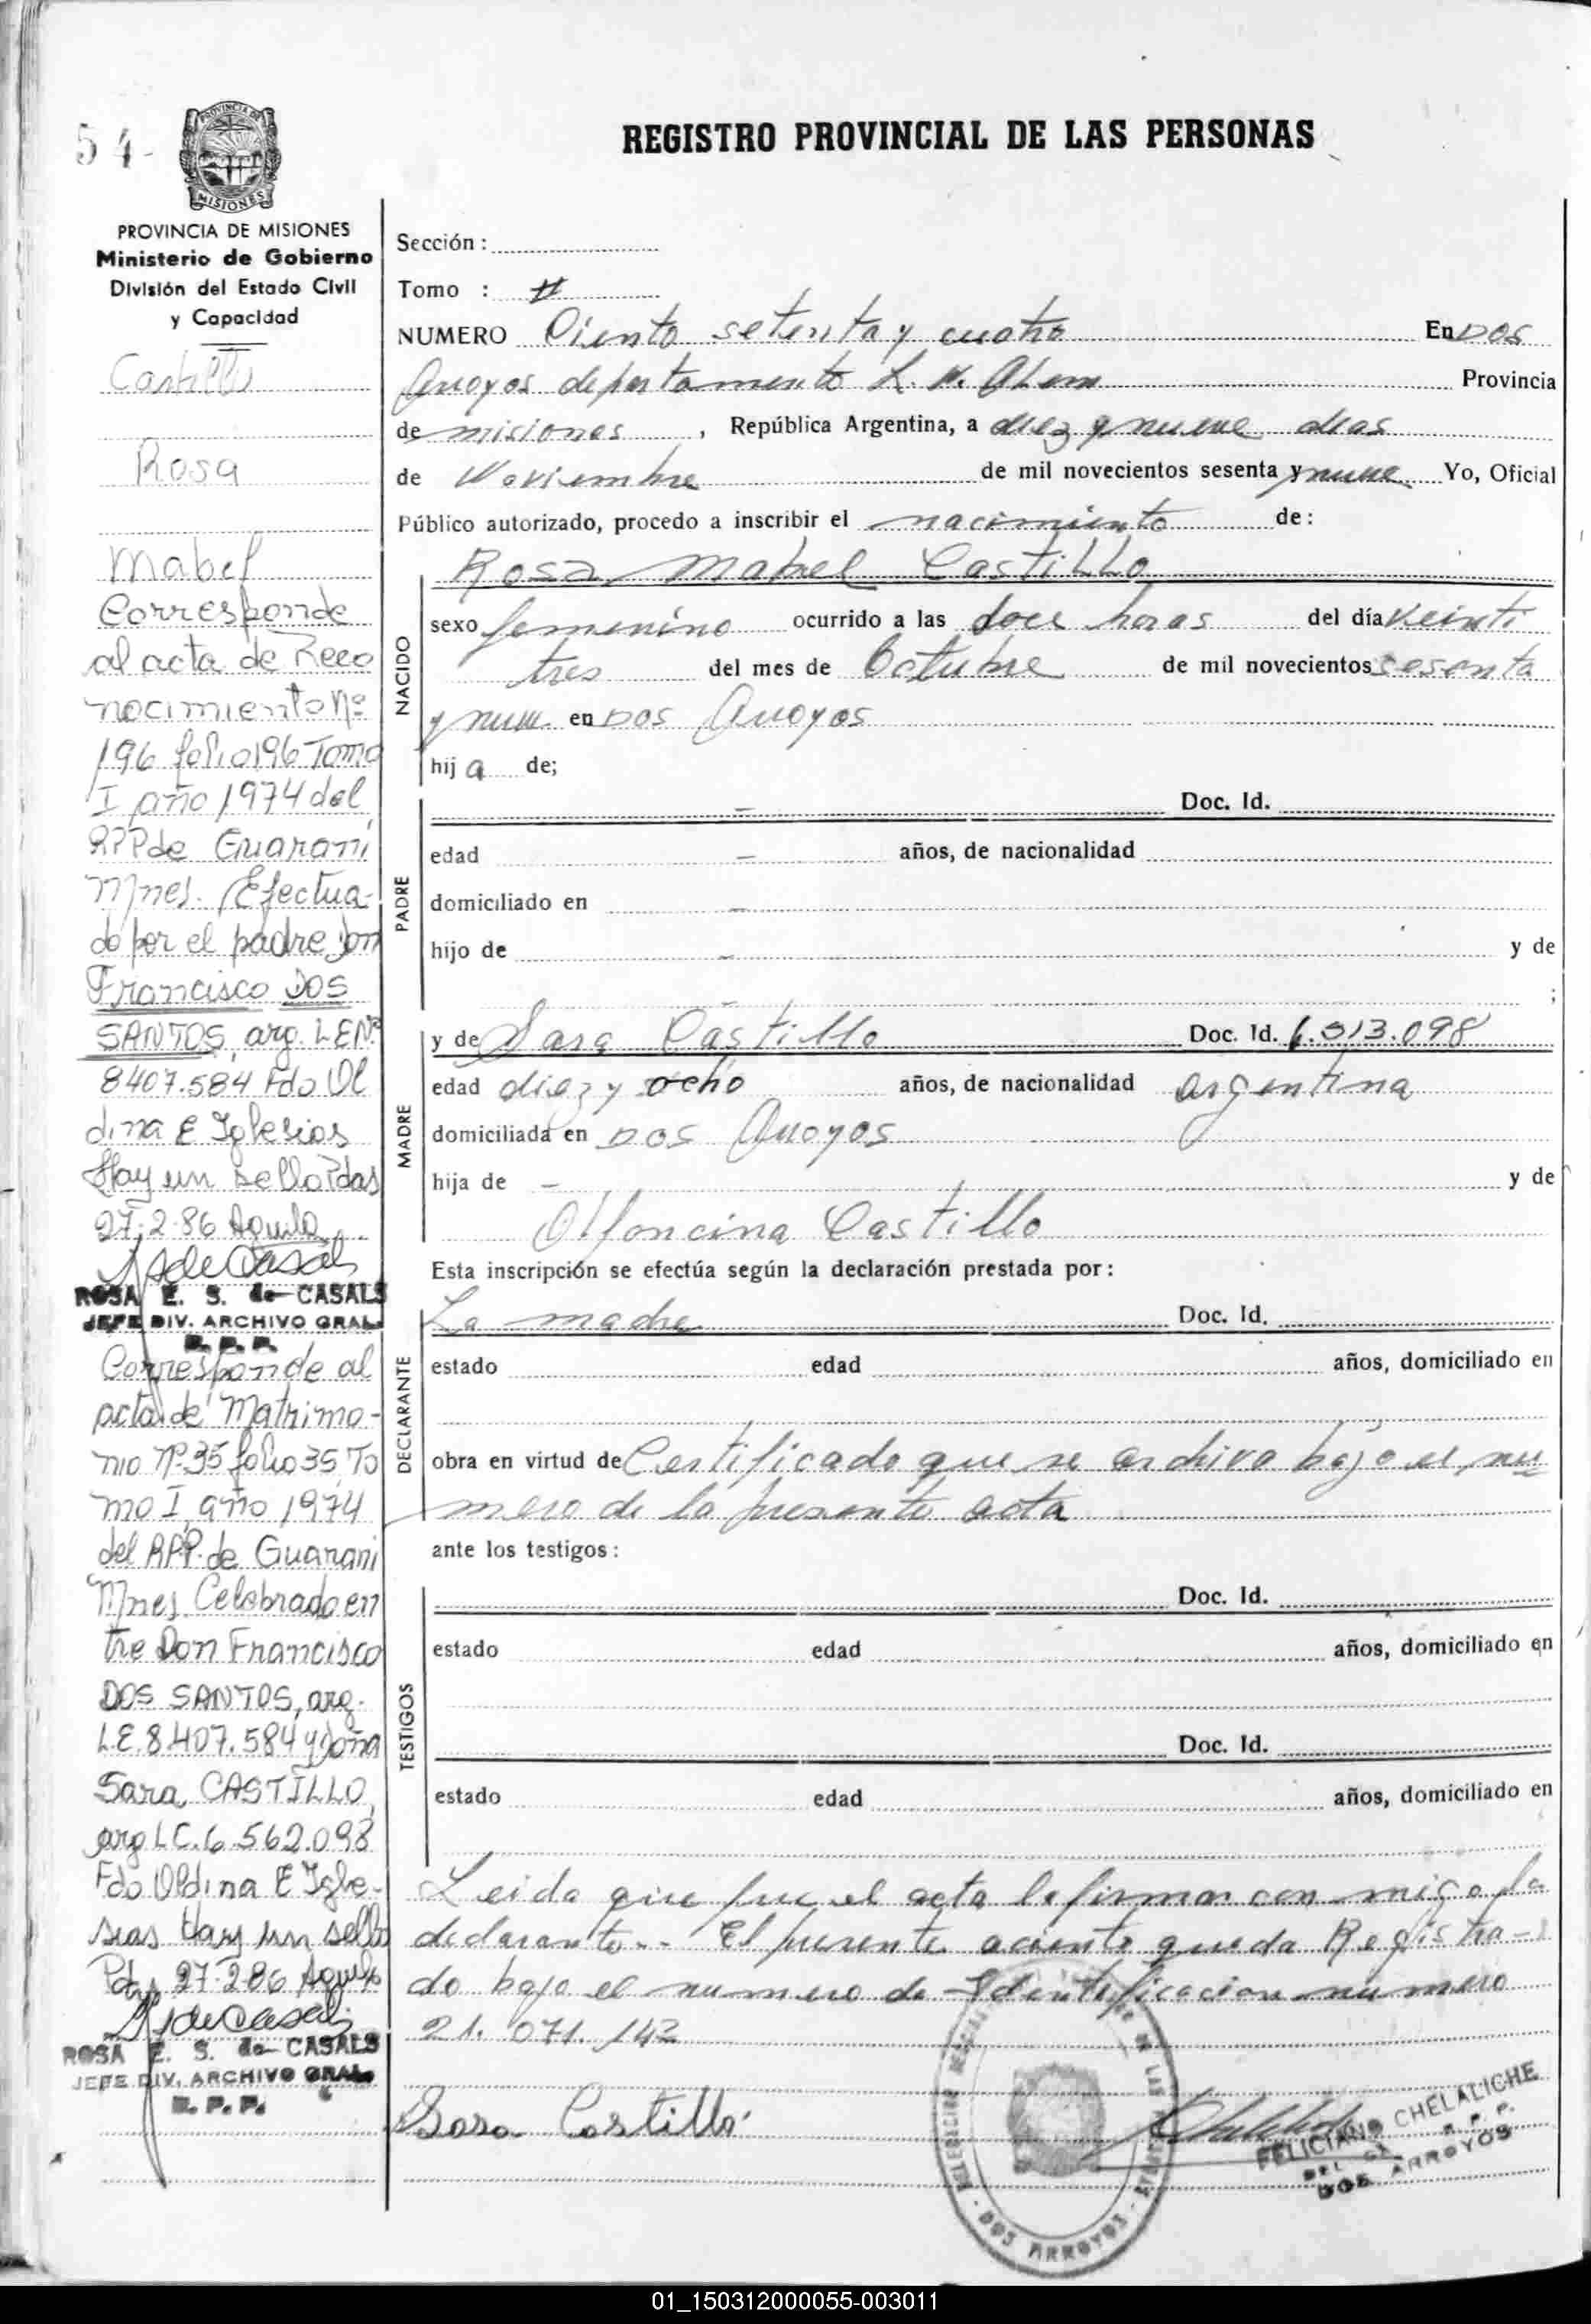 54-
PROVINCIA DE MISIONES
PROVINCIA DE MISIONES
Ministerio de Gobierno
División del Estado Civil
y Capacidad
Castillo
Rosa
Mabel
Corresponde
al acta de Reco
nocimiento Nº
196 folio 196 Tomo
I año 1974 del
RPP de Guaraní
Mnes. Efectua-
do por el padre Don
Francisco DOS
SANTOS, arg. LE Nº
8407.584 Fdo Ol
dina E Iglesias
Hay un sello Pdas
27-2-86 Aguila
ROSA E. S. de CASALS
JEFE DIV. ARCHIVO GRAL.
R. P. P.
Corresponde al
acta de Matrimo-
nio Nº 35 folio 35 To
mo I, año 1974
del RPP. de Guarani
Mnes Celebrado en
tre Don Francisco
DOS SANTOS, arg.
LE 8.407.584 y Doña
Sara CASTILLO,
arg LC. 6.562.098
Fdo Oldina E Igle-
sias Hay un sello
Pdas 27-2-86 Aguila
ROSA E. S. de CASALS
JEFE DIV. ARCHIVO GRAL.
R. P. P.
REGISTRO PROVINCIAL DE LAS PERSONAS
Sección :
Tomo :
NUMERO Ciento setenta y cuatro En Dos
Arroyos departamento L. N. Alem Provincia
de misiones , República Argentina, a diez y nueve dias
de Noviembre de mil novecientos sesenta y nueve Yo, Oficial
Público autorizado, procedo a inscribir el nacimiento de :
Rosa Mabel Castillo
NACIDO
sexo femenino ocurrido a las doce horas del día veinti
tres del mes de Octubre de mil novecientos sesenta
y nueve en Dos Arroyos
hij a de;
PADRE
- Doc. Id.
edad - años, de nacionalidad
domiciliado en -
hijo de - y de
- ;
MADRE
y de Sara Castillo Doc. Id. 6.513.098
edad diez y ocho años, de nacionalidad argentina
domiciliada en Dos Arroyos
hija de - y de
Alfoncina Castillo
Esta inscripción se efectúa según la declaración prestada por :
DECLARANTE
La madre Doc. Id.
estado edad años, domiciliado en
obra en virtud de Certificado que se archiva bajo el nu
mero de la presente acta
ante los testigos :
TESTIGOS
Doc. Id.
estado edad años, domiciliado en
Doc. Id.
estado edad años, domiciliado en
Leida que fue el acta la firman con migo la
declarante.- El presente aciento queda Registra-
do bajo el numero de Identificacion numero
21. 071. 142
Sara Castillo
DOS ARROYOS
FELICIANO CHELALICHE
R. P. P.
DOS ARROYOS
01_150312000055-003011